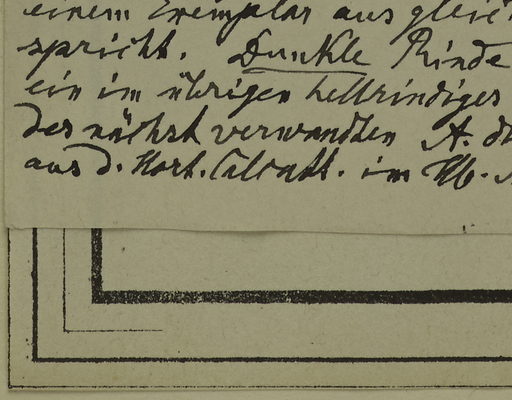 einem Exemplar aus gleich
spricht. Dunkle Rinde
ein im übrigen hellrindiges
des nächst verwandten A.
aus d. Hort. Calcutt. im Hb.